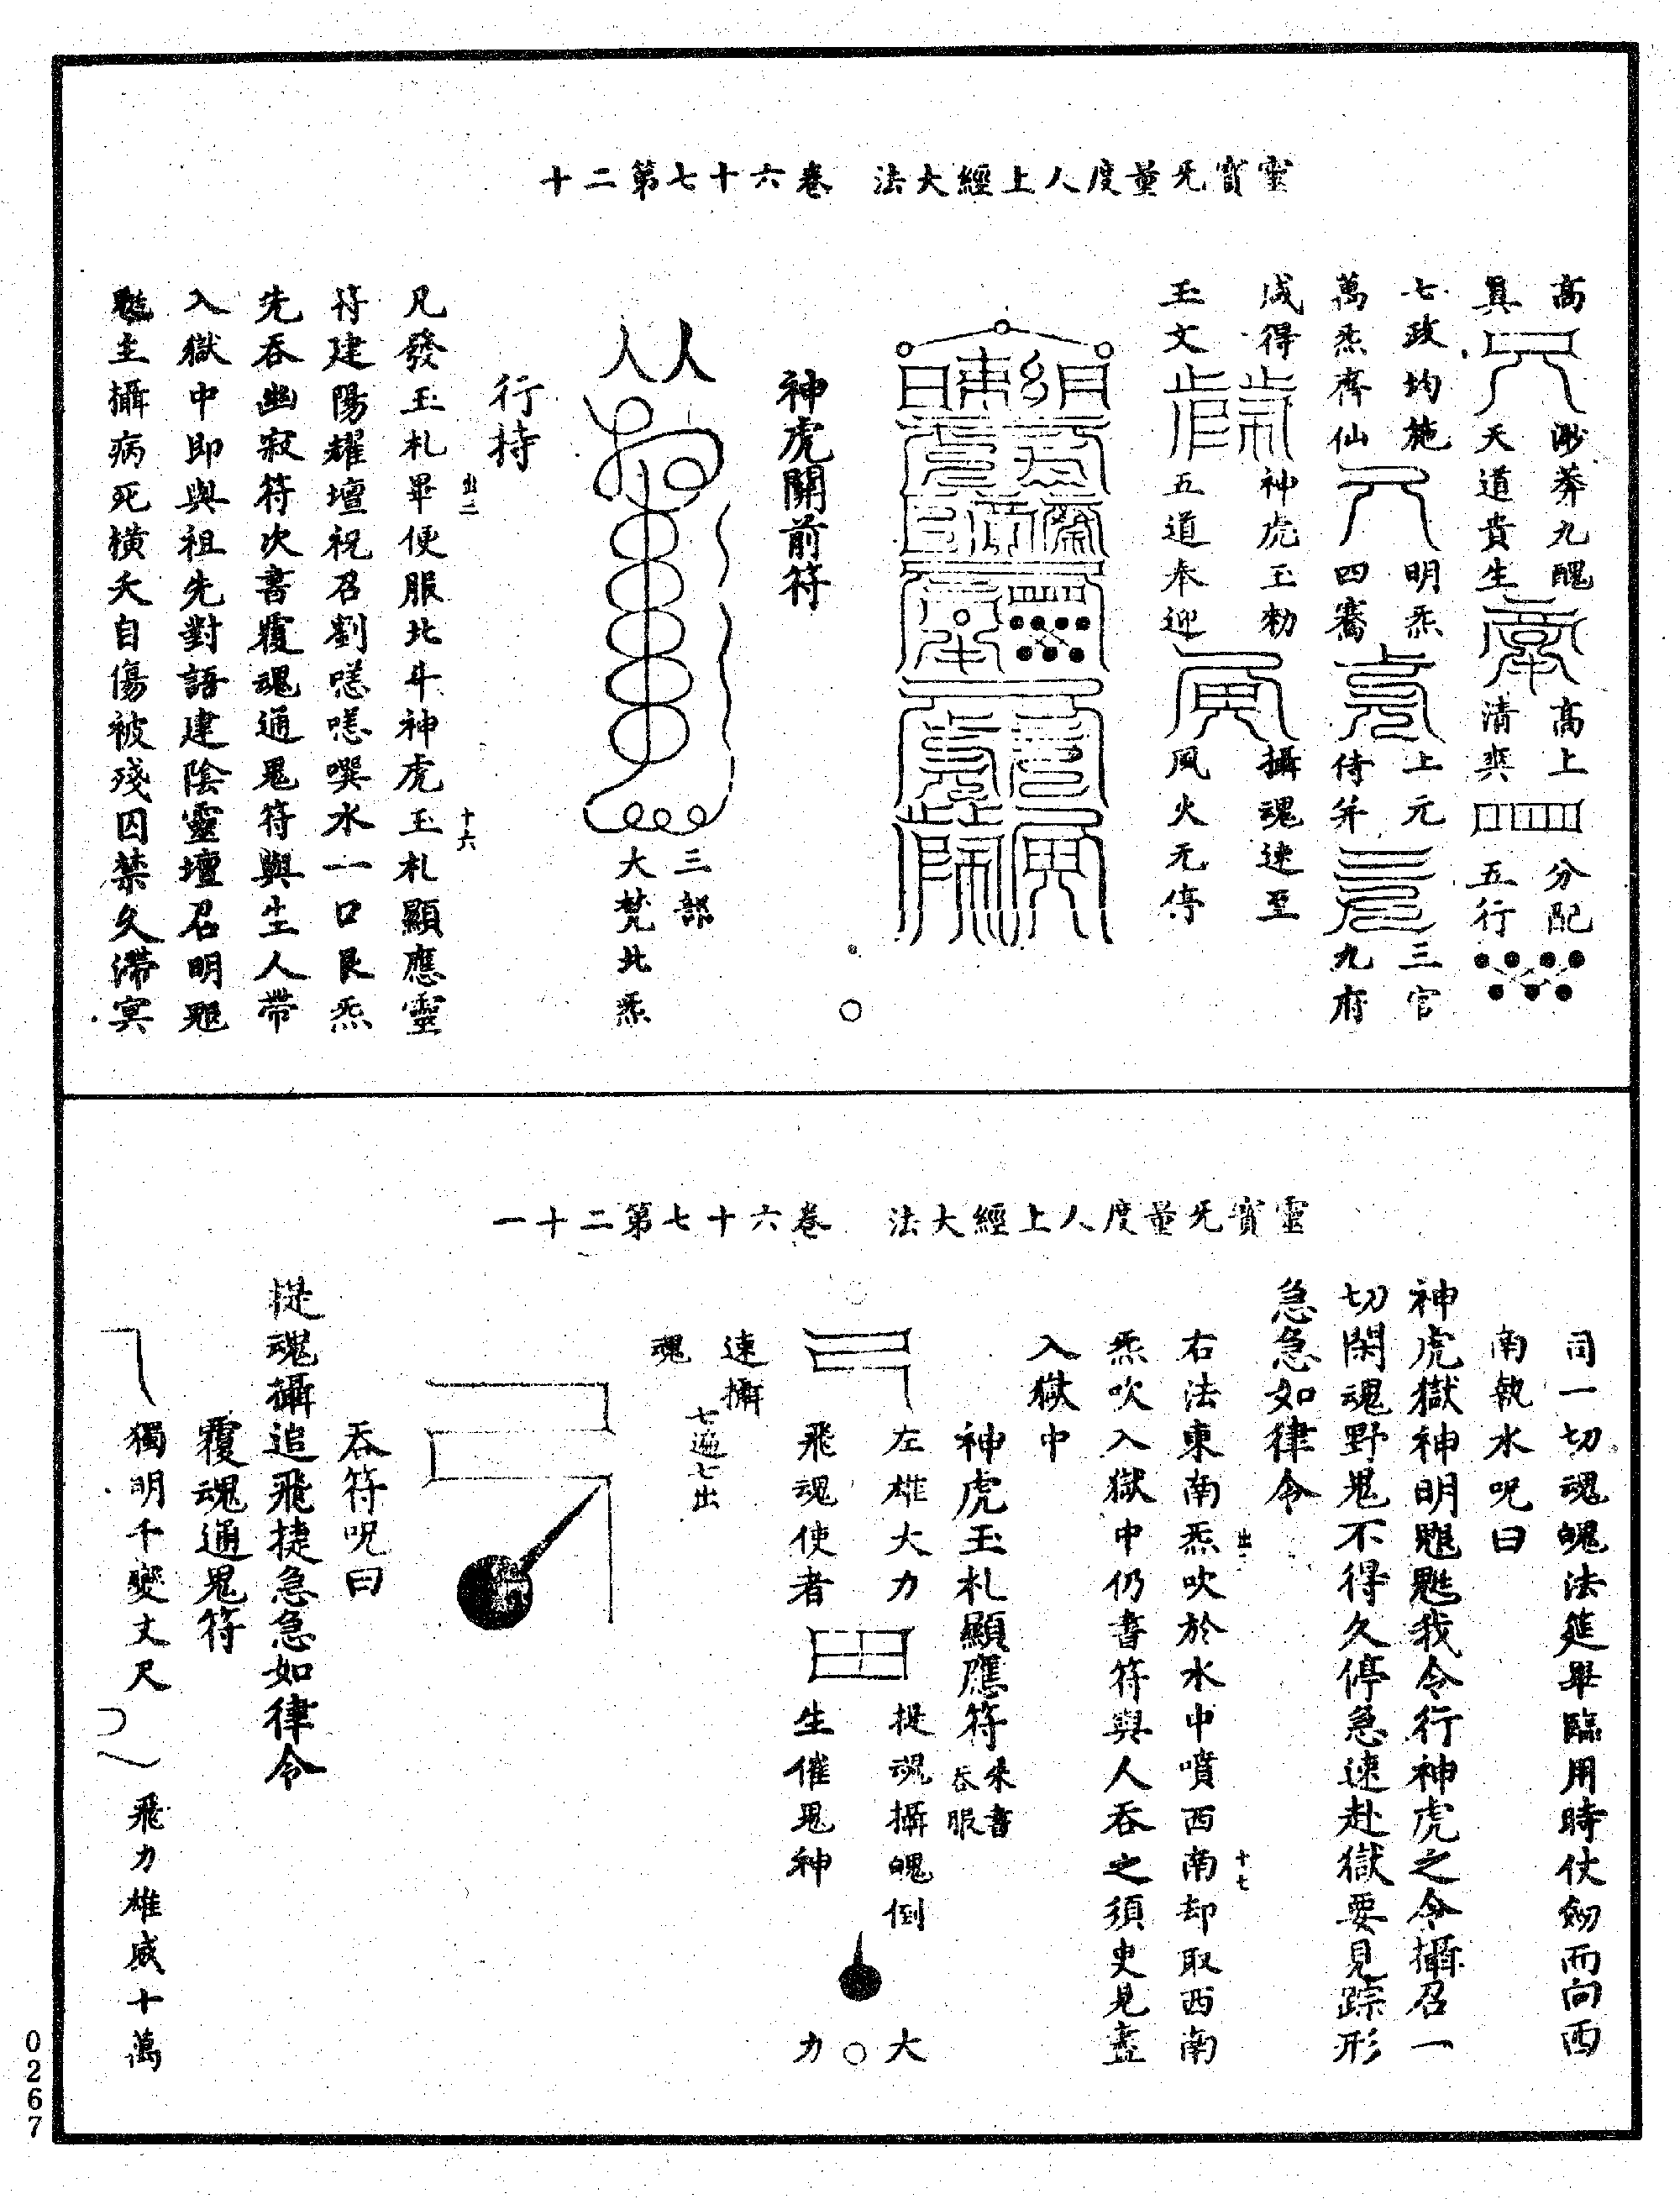 靈寳无量度人上經大法　卷六十七第二十
高　渺莽九醜　高上　分配
眞　天道貴生　清爽　五行
七政均施　明炁　上元　三官
萬炁齊仙　四騫　侍并　九府
成得　神虎玉勑　攝魂速至
玉文　五道奉迎　風火无停
神虎關前符
三部
大梵北炁
行持
出二　十六
凡發玉札畢便服北斗神虎玉札顯應靈
符建陽耀壇祝召劉𠰸𠰸噀水一口艮炁
先吞幽寂符次書覆魂通鬼符與生人帶
入獄中即與祖先對語建陰靈壇召明
主攝病死橫夭自傷被殘囚禁久滯冥
靈寳无量度人上經大法　卷六十七第二十一
司一切魂魄法筵畢臨用時仗劒而向西
南執水呪曰
神虎獄神明我令行神虎之令攝召一
切閑魂野鬼不得久停急速赴獄要見踪形
急急如律令
出二　十七
右法東南炁吹於水中噴西南却取西南
炁吹入獄中仍書符與人吞之須臾見盡
入獄中
神虎玉札顯應符朱書吞服
左雄大力　捉魂攝魄倒　大
飛魂使者　生催鬼神　力
速攝
魂
七遍七出
吞符呪曰
捉魂攝追飛捷急急如律令
覆魂通鬼符
獨明千變丈尺　飛力雄威十萬
0267